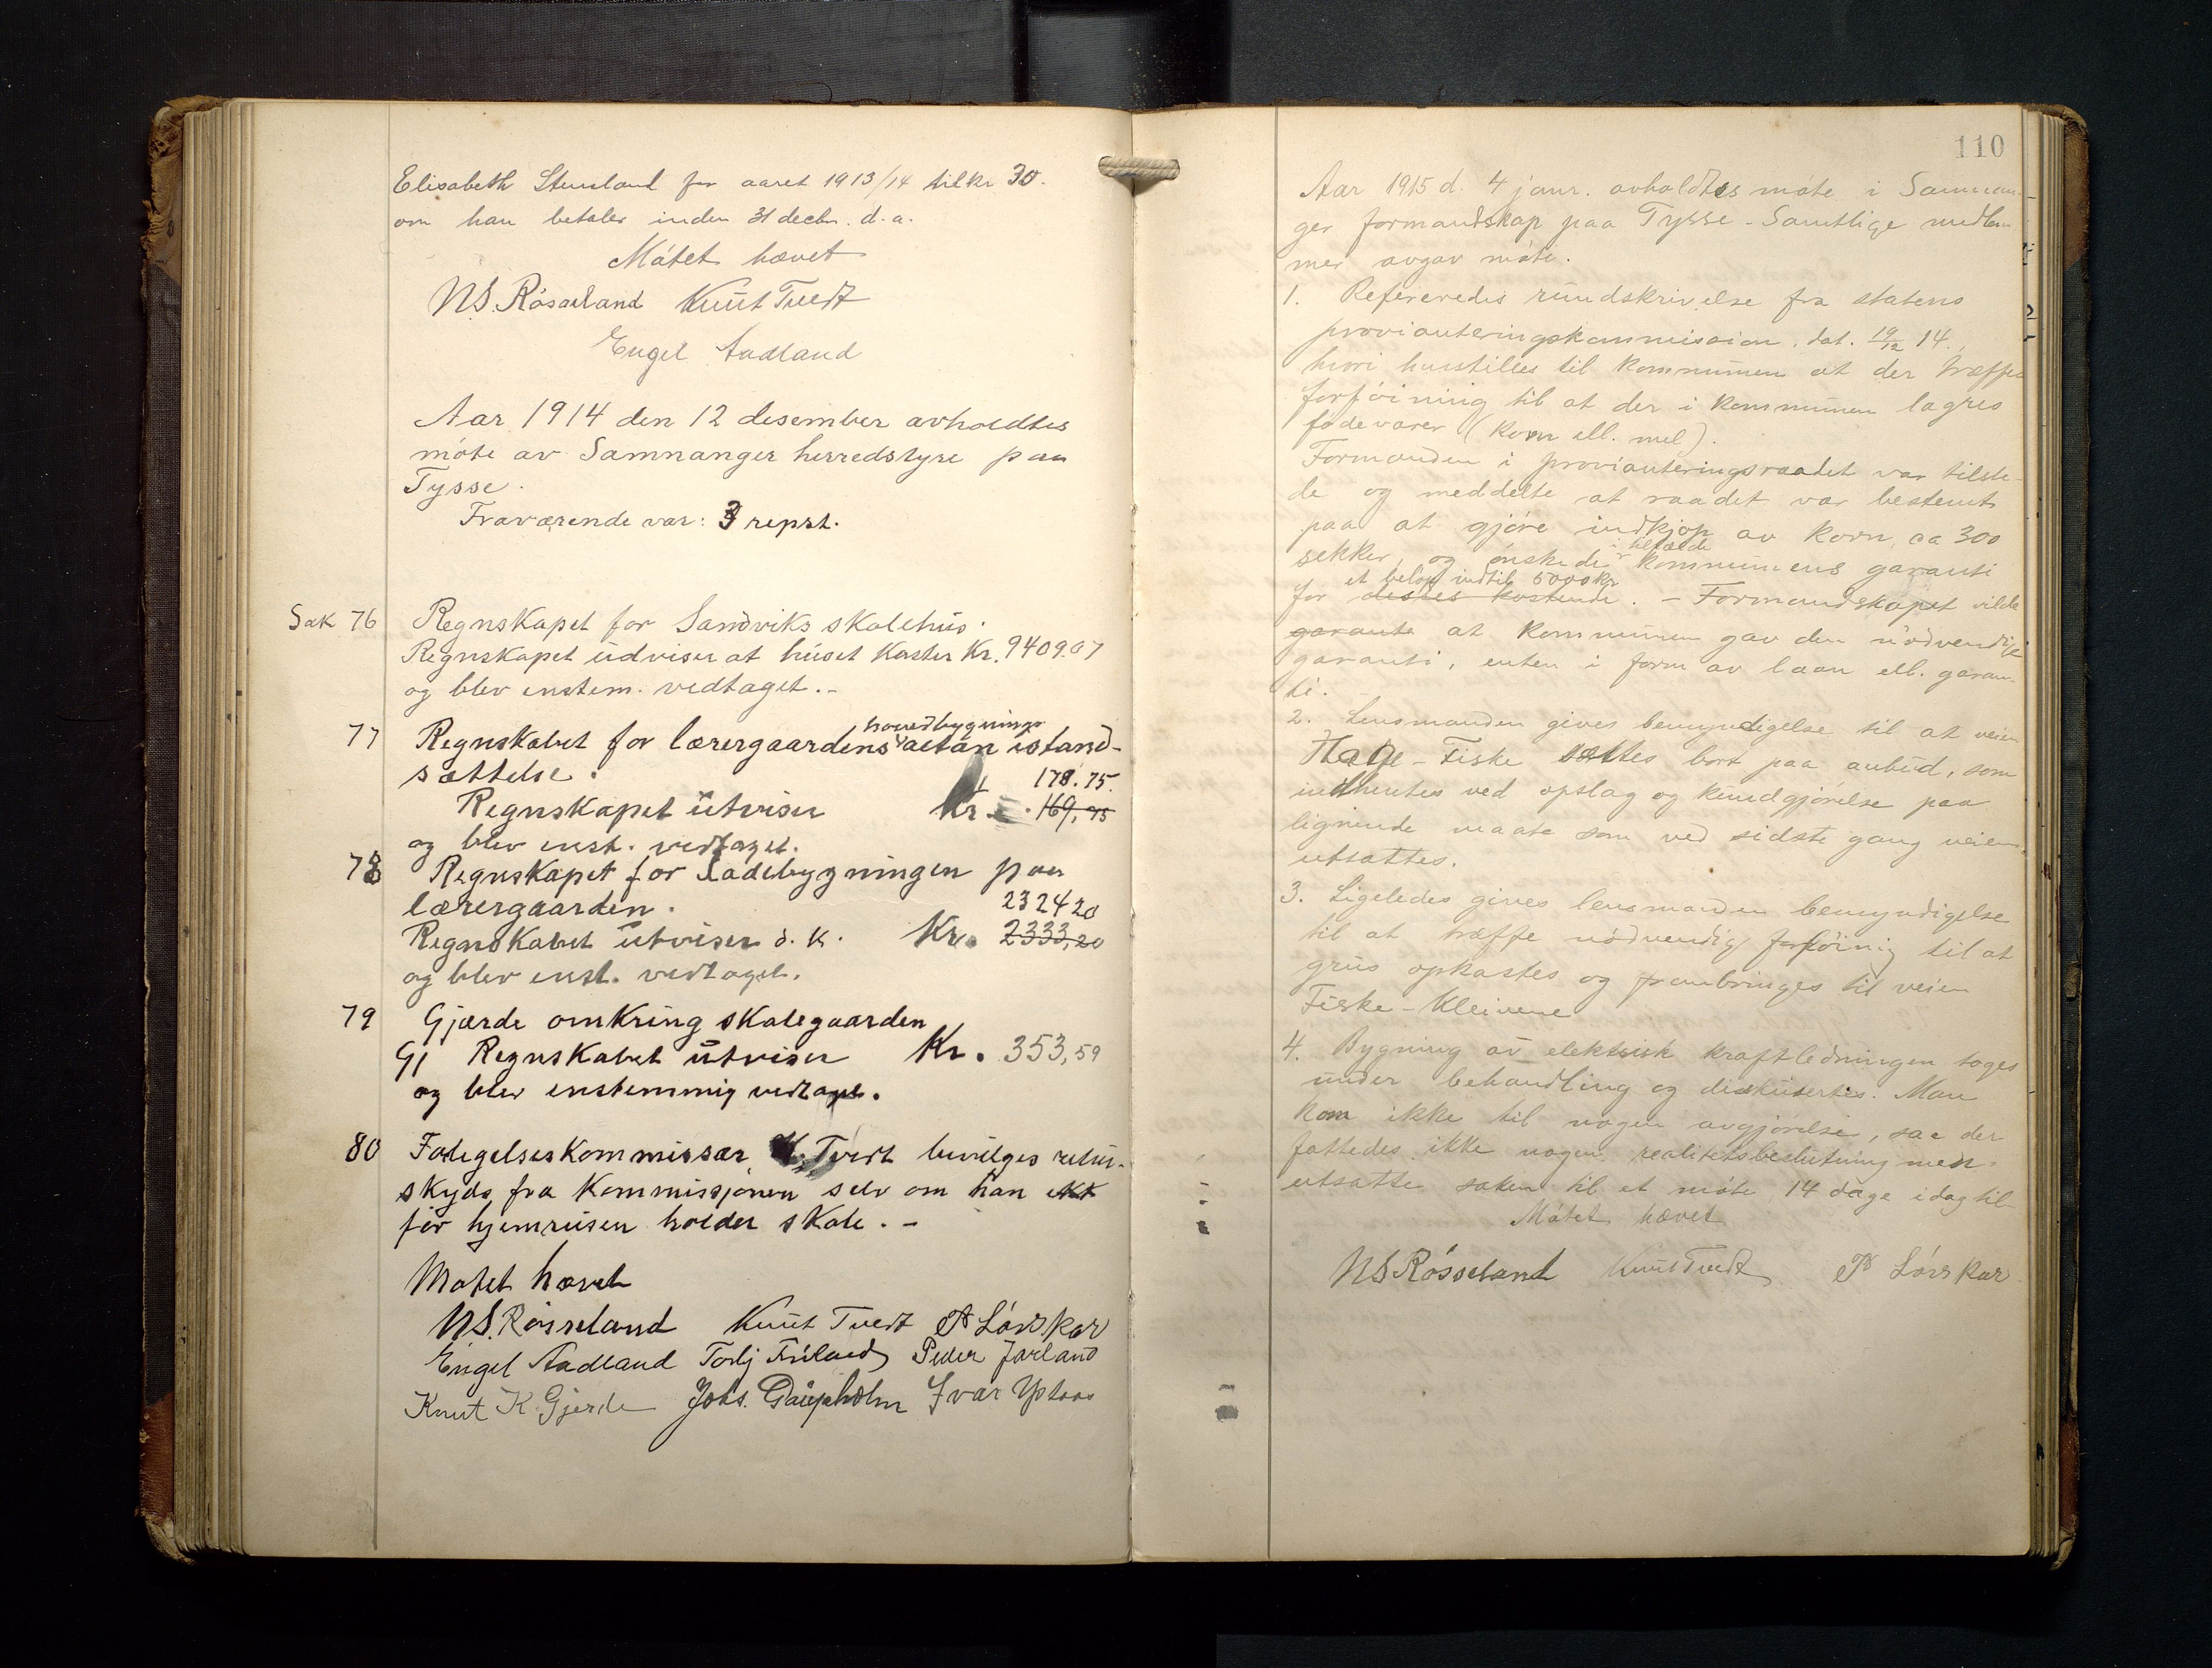 Elisabeth Stensland for aaret 1913/14 til kr 30.
om han betaler inden 31 decbr. d. a.
Mötet hævet
N.S. Rösseland Knut Tvedt
Engel Aadland
Aar 1914 den 12 desember avholdtes
möte av Samnanger herredstyre paa
Tysse.
Fraværende var: 3 reprt.
Sak 76 Regnskapet for Sandviks skolehus.
Regnskapet udviser at huset koster Kr. 9409.07
og blev enstem. vedtaget. -
hovedbygnings
77 Regnskabet for lærergaardens altan istand-
sættelse. 178.75.
Regnskapet utviser Kr. 169,75
og blev enst. vedtaget.
78 Regnskapet for Ladebygningen paa
lærergaarden. 2324 20
Regnskabet utviser d. k. Kr. 2333,20
og blev enst. vedtaget.
79 Gjærde omkring skolegaarden
Regnskabet utviser Kr. 353,59
og blev enstemmig vedtaget.
80 Fatigelseskommissær K. Tvedt bevilges retur-
skyds fra Kommissjonen selv om han ikke
för hjemreisen holder skole. -
Mötet hævet
N.S. Rösseland Knut Tvedt P Lönskar
Engel Aadland Torbj Frøland Peder Jarland
Knut K. Gjerde Johs. Gaupholm Ivar Ystaas
110
Aar 1915 d. 4 janr. avholdtes möte i Samnan-
ger formandskap paa Tysse - Samtlige medlem
mer avgav möte.
1. Refereredes rundskrivelse fra statens
provianteringskommission, dat. 19/12 14.,
hvori henstilles til kommunen at der træffes
forföining til at der i kommunen lagres
födevarer (korn ell. mel).
Formanden i provianteringsraadet var tilste-
de og meddelte at raadet var bestemt
paa at gjöre indkjöp av korn, ca 300
i tilfælde
sekker, og önskede kommunens garanti
et belöp indtil 5000 kr
for desses kostende. - Formandskapet vilde
garante at kommunen gav den nödvendige
garanti, enten i form av laan ell. garan-
ti.
2. Lensmanden gives bemyndigelse til at veien
Hage - Fiske sættes bort paa anbud, som
indhentes ved opslag og kundgjörelse paa
lignende maate som ved sidste gang veien
utsattes.
3. Ligeledes gives lensmanden bemyndigelse
til at træffe nödvendig forföinig til at
grus opkastes og frembringes til veien
Fiske - Kleivene
4. Bygning av elektrisk kraftledningen toges
under behandling og diskutertes. Man
kom ikke til nogen avgjörelse, saa der
fattedes ikke nogen realitetsbeslutning men
utsatte saken til et möte 14 dage idag til-
Mötet hævet
N S Rösseland Knut Tvedt P Lönskar